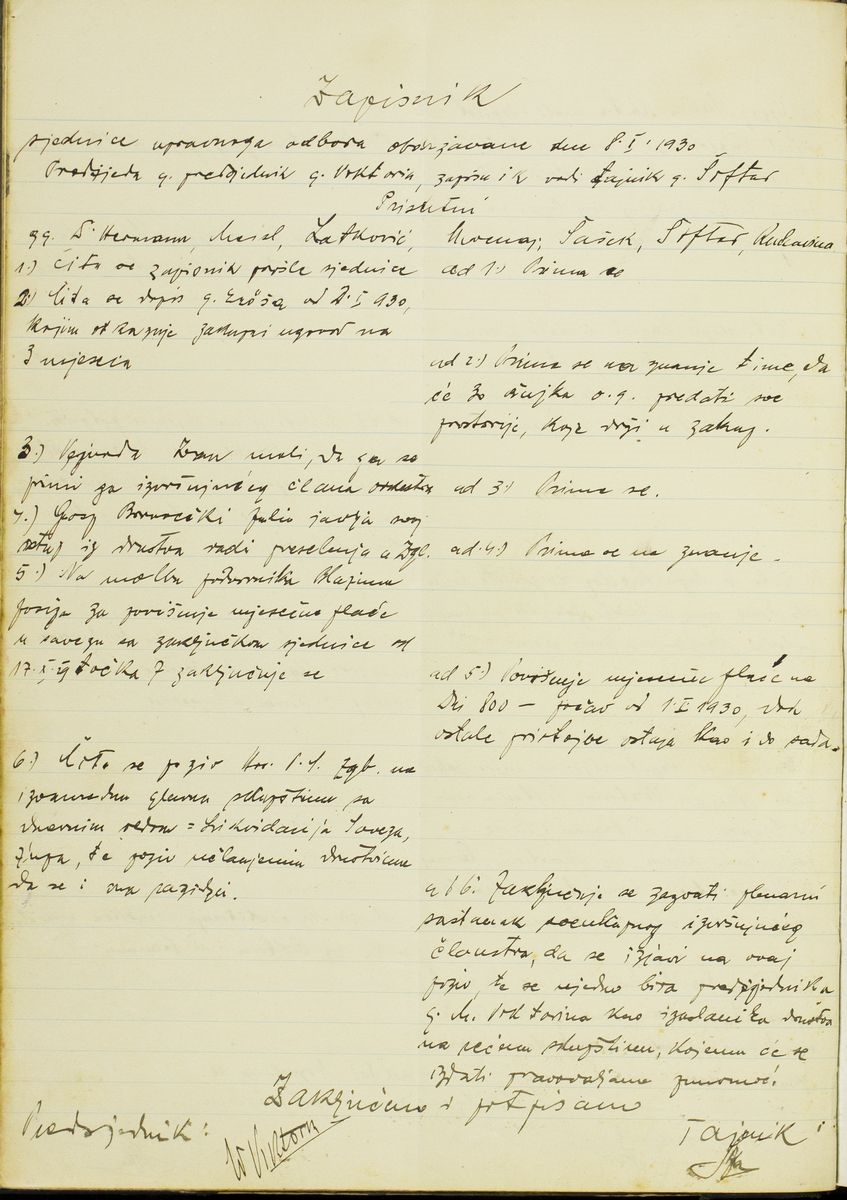 Zapisnik
sjednice upravnoga odbora obdržavane dne 8.I.1930
Predsjeda g. predsjednik g. Viktorin, zapisnik vodi tajnik g. Šoftar
Prisutni
gg. D. Hermann, Meisl, Latković, Šašek, Šoftar,
1.) Čita se zapisnik prošle sjednice
ad 1.) Prima se
2.) Čita se dopis g. od 2.I.930,
kojim otkazuje zakupni ugovor na
3 mjeseca
ad 2.) Prima se na znanje time, da
će 30 ožujka o.g. predati sve
prostorije, koje drži u zakup.
3.) Vojvoda moli, da ga se
primi za izvršujućeg člana orkestra
ad 3.) Prima se.
4.) Gosp Julio javlja svoj
istup iz društva radi preselenja u Zgb.
ad 4.) Prima se na znanje.
5.) Na molbu podvornika
Josipa za povišenje mjesečne plaće
u savezu sa zaključkom sjednice od
17. točka 7 zaključuje se
ad 5.) Povišenje mjesečne plaće na
Din 800 — počav od 1.I.1930, dok
ostale pristojbe ostaju kao i do sada.
6.) Čita se poziv Hrv. P.S. Zgb. na
izvanrednu glavnu skupštinu sa
dnevnim redom = Likvidacija Saveza,
župa, te poziv učlanjenim društvima
da se i ona razidju.
ad 6. Zaključuje se sazvati plenarni
sastanak sveukupnog izvršujućeg
članstva, da se izjavi na ovaj
poziv, te se ujedno bira predsjednika
g. M. Viktorina kao izaslanika društva
na rečenu skupštinu, kojemu će se
izdati pravovaljanu punomoć.
Zaključeno i potpisano
Predsjednik:
Viktorin
Tajnik